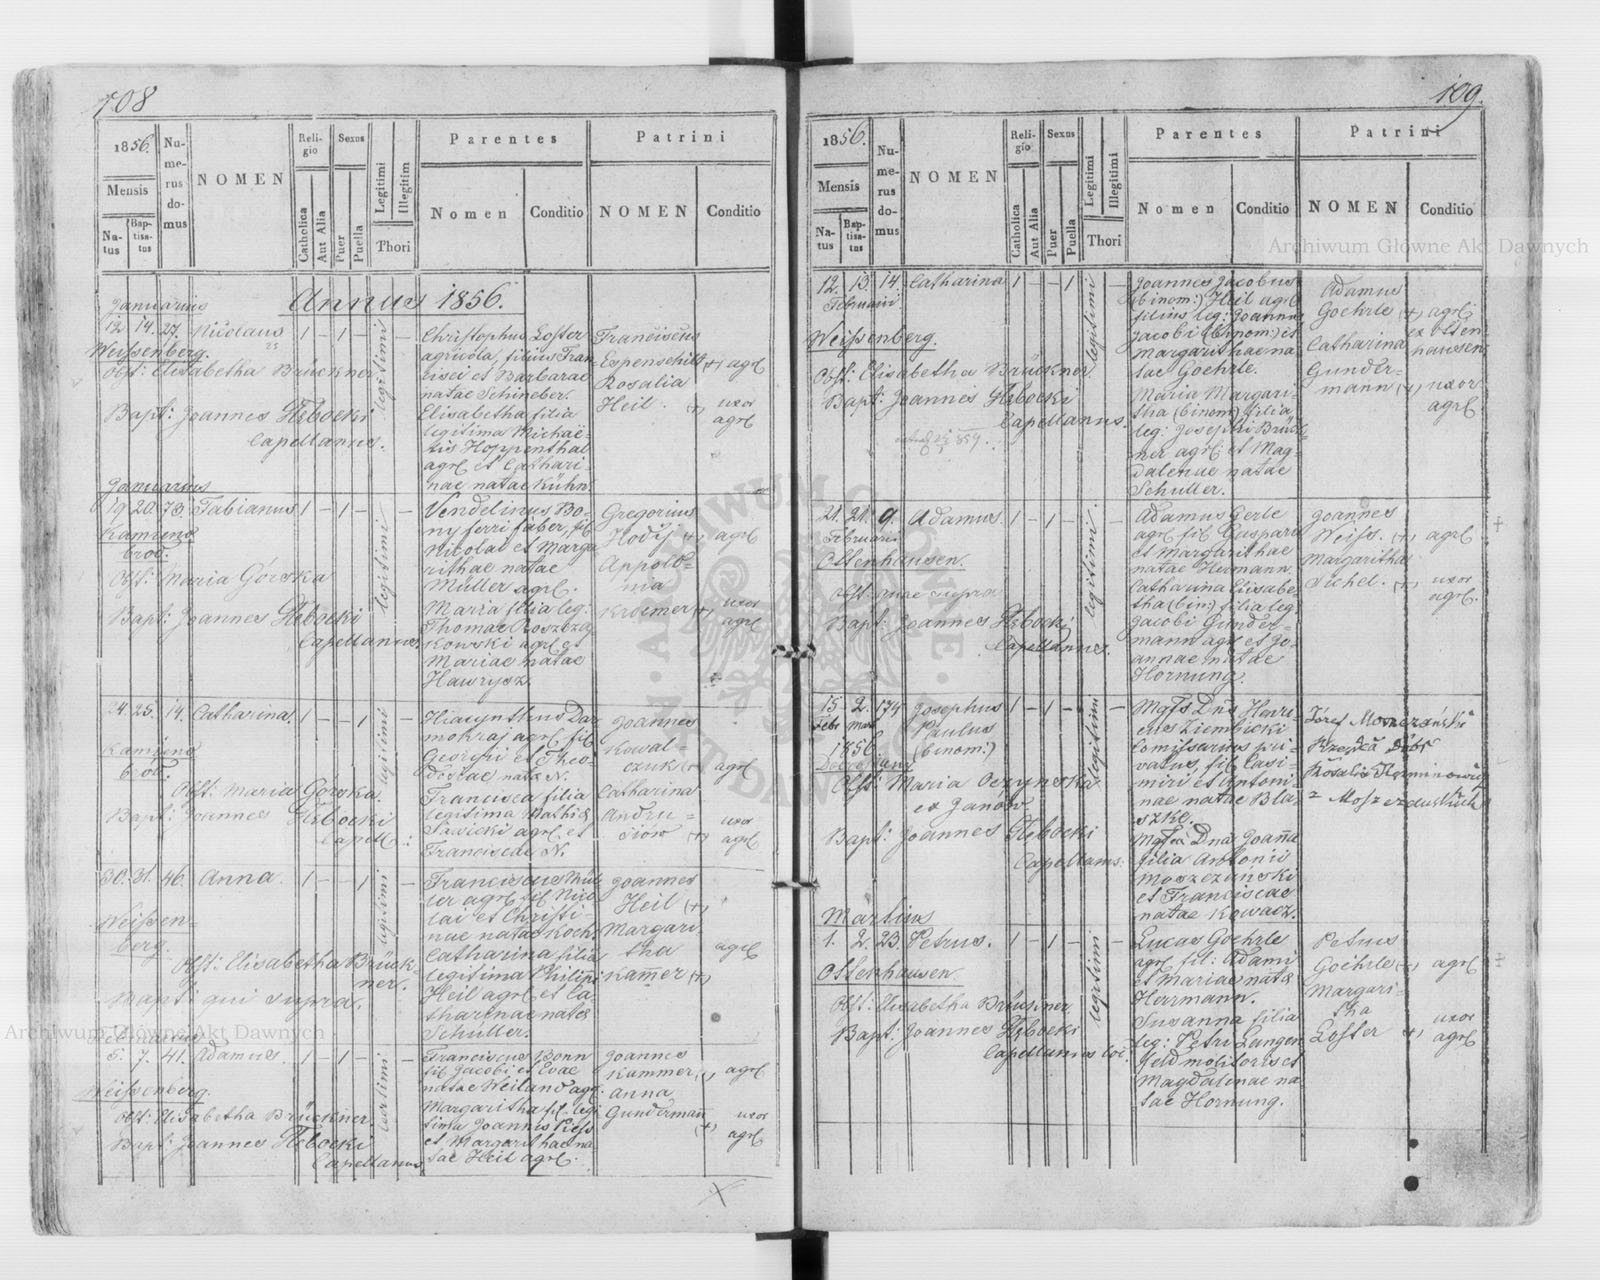 108
1856.
Mensis
Natus
Baptisatus
Numerus domus
NOMEN
Religio
Catholica
Aut Alia
Sexus
Puer
Puella
Legitimi
Illegitim
Thori
Parentes
Nomen
Conditio
Patrini
NOMEN
Conditio
Januarius
Annus 1856.
12 14. 27. Nicolaus 1 - 1 - legitimi -
Weißenberg.
Obst: Elisabetha Brückner
Bapt: Joannes Głębocki
Capellanus.
Christophus Loster
agricola, filius Fran-
cisci et Barbarae
natae Schineber.
Elisabetha filia
legitima Michaë-
lis Hoppenthal
agrl et Cathari-
nae natae Kühn.
Franciscus
Espenschild (+) agrl
Rosalia
Heil. (+) uxor
agrl
Januarius
19 20. 73. Fabianus 1 - 1 - legitimi -
Kamieno
brod.
Obst: Maria Górska
Bapt: Joannes Głębocki
Capellanus.
Vendelinus Bo-
ny ferri faber, fil
Nicolai et Marga
rithae natae
Müller agrl.
Maria filia leg:
Thomae Roszcza
kowski agrl et
Mariae natae
Hawrysz.
Gregorius
Hodij (+) agrl
Appolo-
nia
Kroemer (+) uxor
agrl
24. 25. 14. Catharina. 1 - - 1 legitimi -
Kamieno
brod.
Obst: Maria Górska.
Bapt: Joannes Głębocki
Capell:
Hiacynthus Dar
mokraj agrl fil
Georgii et Theo-
dosiae natae N.
Francisca filia
legitima Mathiae
Sawicki agrl et
Franciscae N.
Joannes
Kowal-
czuk (+) agrl
Catharina
Andru-
siow (+) uxor
agrl
30. 31. 46. Anna. 1 - - 1 legitimi -
Weißen-
berg.
Obst: Elisabetha Brück-
ner.
Bapt: qui supra.
Franciscus Mül
ler agrl fil Nico
lai et Christi-
nae natae Koch.
Catharina filia
legitima Philipi
Heil agrl et Ca-
tharinae natae
Schuller.
Joannes
Heil (+)
Margari-
tha agrl
Kamer (+)
Februarius
6. 7. 41. Adamus. 1 - 1 - legitimi -
Weißenberg.
Obst: Elisabetha Brückner.
Bapt: Joannes Głębocki
Capellanus
Franciscus Bonn
fil Jacobi et Evae
natae Weiland agrl.
Margaritha fil. legi
tima Joannis Piess
et Margarithae na
tae Heil agrl.
Joannes
Kammer (+) agrl
Anna
Gunderman
(+) uxor
agrl
109.
1856.
Mensis
Natus
Baptisatus
Numerus domus
NOMEN
Religio
Catholica
Aut Alia
Sexus
Puer
Puella
Legitimi
Illegitimi
Thori
Parentes
Nomen
Conditio
Patrini
NOMEN
Conditio
12. 13. 14. Catharina 1 - - 1 legitimi -
Februarii
Weißenberg.
Obst: Elisabetha Brückner.
Bapt: Joannes Głębocki
Capellanus.
Joannes Jacobus
(binom:) Heil agrl
filius leg: Joannis
Jacobi (binom:) et
Margarithae na-
tae Goehrle.
Maria Margari-
tha (binom) filia
leg: Josephi Brück-
ner agrl et Mag-
dalenae natae
Schuller.
Adamus
Goehrle (+) agrl
ex Otten-
hausen
Catharina
Gunder-
mann (+) uxor
agrl
21. 21. 9. Adamus. 1 - 1 - legitimi -
Februarii
Ottenhausen.
Obst: quae supra
Bapt: Joannes Głębocki
Capellanus.
Adamus Gerle
agrl fil Gaspari
et Margarithae
natae Hermann.
Catharina Elisabe-
tha (bin:) filia leg
Jacobi Gunder-
mann agrl et Jo-
annae natae
Hornung.
Joannes
Weiss. (+) agrl
Margaritha
Sichel. (+) uxor
agrl.
15. 2. 174 Josephus 1 - 1 - legitimi -
Febr. Mart Paulus
1856. (binom:)
Obst: Maria Oczynska
ex Janów
Bapt: Joannes Głębocki
Capellanus.
Mgfs Dns Henri-
cus Ziembicki
Comissarius pri-
vatus, fil Casi-
miri et Antoni-
nae natae Bla-
szke.
Mgfca Dna Joanna
filia Antonii
Moszczanski
et Franciscae
natae Kowacz.
Józef Moszczański
Rządca Dóbr
Rosalia
z Moszczańskich
Martius
1. 2. 23. Petrus. 1 - 1 - legitimi -
Ottenhausen.
Obst: Elisabetha Brückner
Bapt: Joannes Głębocki
Capellanus loc.
Lucas Goehrle
agrl fil: Adami
et Mariae natae
Herrmann.
Susanna filia
leg: Petri Langen
feld molitoris et
Magdalenae na
tae Hornung.
Petrus
Goehrle (+) agrl
Margari-
tha
Loster (+) uxor
agrl
Archiwum Główne Akt Dawnych
Archiwum Główne Akt Dawnych
ARCHIWUM GŁÓWNE AKT DAWNYCH